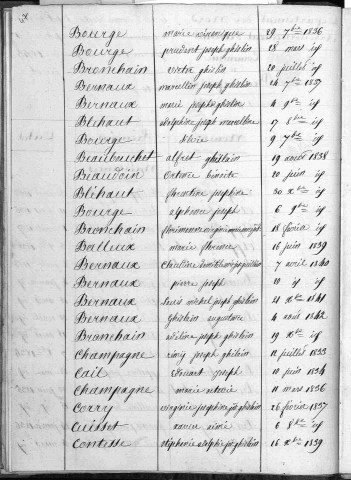 Bourge marie véronique 29 7bre 1836
Bourge prudent joseph ghislin 28 mars id
Bronchain victor ghislin 20 juillet id
Bernaux marcellin joseph ghislin 24 7bre 1837
Bernaux marie josephe ghislin 4 9bre id
Bléhaut adelphine joseph 17 8bre id
Bourge 9 7bre id
Beaubouchet alfred ghislain 19 aout 1838
Beauvois Octavie benoite 10 juin id
Bléhaut florentine josephine 30 xbre id
Bourge alphonse joseph 6 9bre id
Bronchain 18 février id
Balleux marie florence 16 juin 1839
Bernaux 7 avril 1840
Bernaux pierre joseph 10 id id
Bernaux Louis michel joseph ghislin 21 xbre 1841
Bernaux Ghislain augustin 4 aout 1842
Bronchain adeline joseph ghislin 19 xbre id
Champagne rémy joseph ghislin 12 juillet 1833
Cail Edouart joseph 10 juin 1834
Champagne marie octavie 11 mars 1836
Corry virginie josephine ghislin 26 février 1837
Cuisset xavier aimé 6 8bre id
Contesse alphonse adolphe jh ghislin 16 xbre 1839